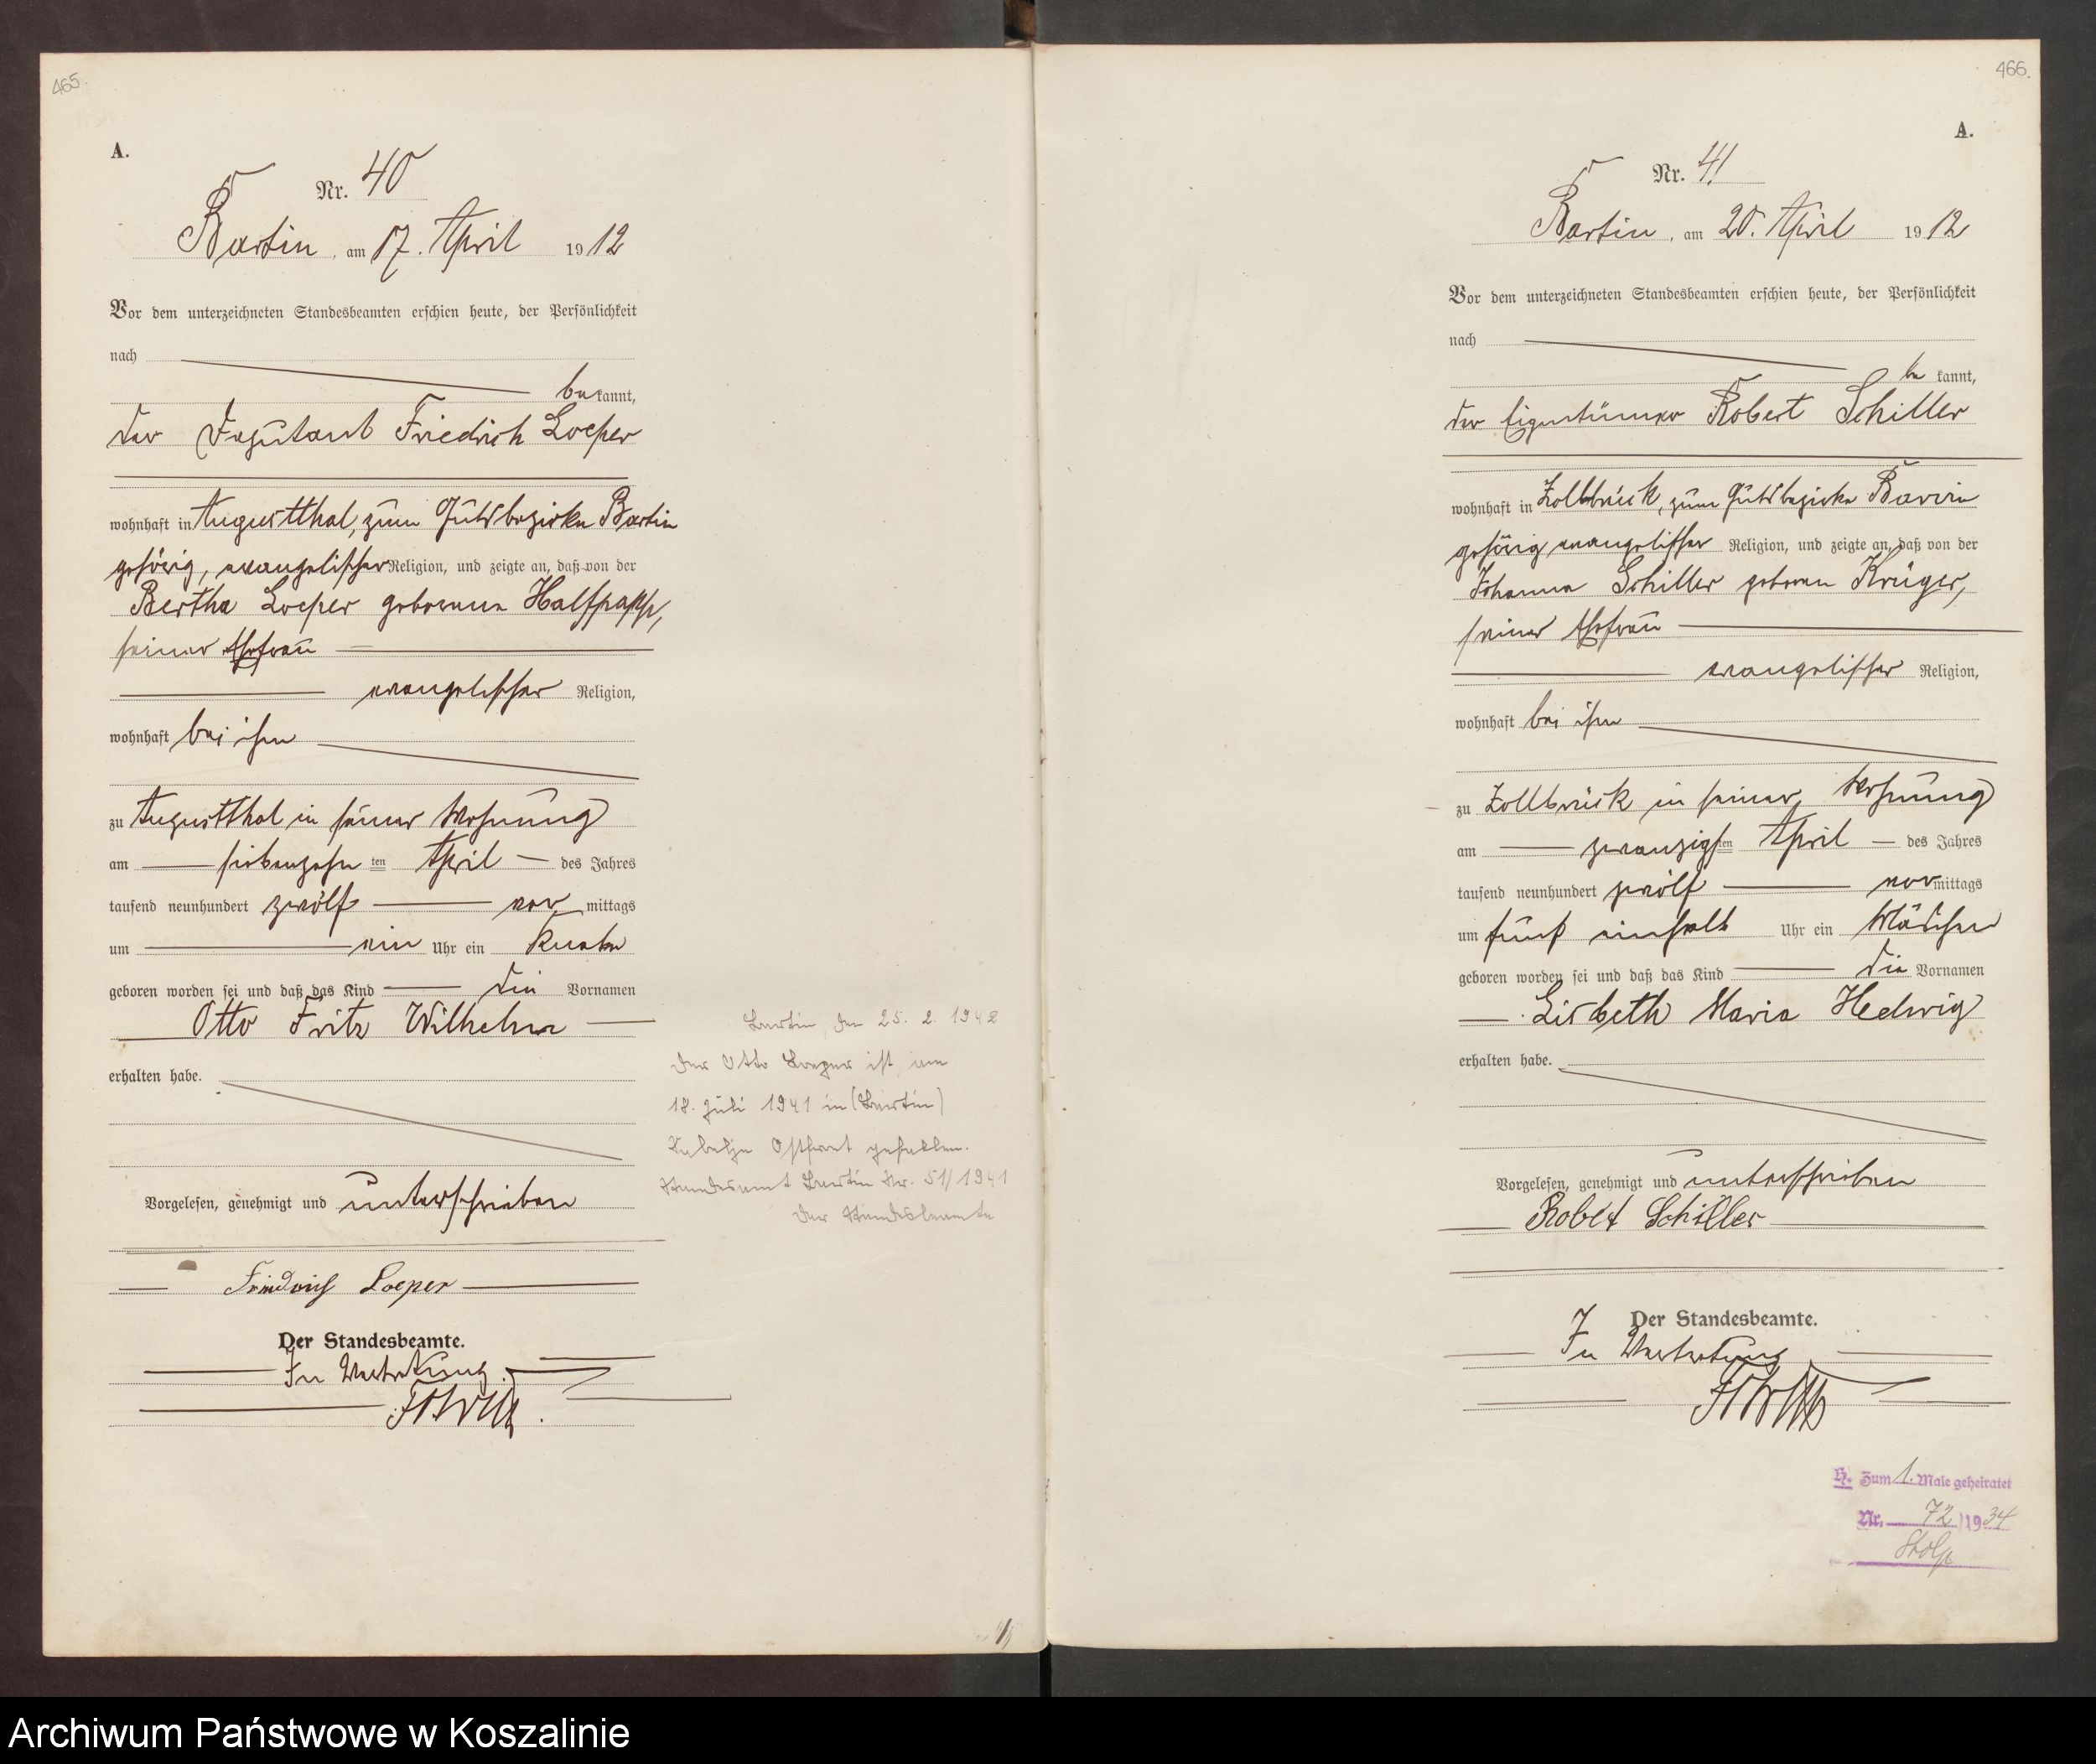 465.
A.
Nr. 40
Bartin, am 17. April 1912
Vor dem unterzeichneten Standesbeamten erschien heute, der Persönlichkeit
nach
bekannt,
der Deputant Friedrich Loeper
wohnhaft in Augustthal, zum Gutsbezirke Bartin
gehörig, evangelischer Religion, und zeigte an, daß von der
Bertha Loeper geborenen Halfpapp,
seiner Ehefrau
evangelischer Religion,
wohnhaft bei ihm
zu Augustthal in seiner Wohnung
am siebenzehnten April des Jahres
tausend neunhundert zwölf vormittags
um ein Uhr ein Knabe
geboren worden sei und daß das Kind die Vornamen
Otto Fritz Wilhelm
erhalten habe.
Vorgelesen, genehmigt und unterschrieben
Friedrich Loeper
Der Standesbeamte.
In Vertretung
Bartin, den 25. 2. 1942
Der Otto Loeper ist am
18. Juli 1941 in (Bartin)
Ostfront gefallen.
Standesamt Bartin Nr. 51/1941
Der Standesbeamte
466.
A.
Nr. 41
Bartin, am 20. April 1912
Vor dem unterzeichneten Standesbeamten erschien heute, der Persönlichkeit
nach
bekannt,
der Eigentümer Robert Schiller
wohnhaft in Zollbrück, zum Gutsbezirke Barvin
gehörig evangelischer Religion, und zeigte an, daß von der
Johanna Schiller geboren Krüger,
seiner Ehefrau
evangelischer Religion,
wohnhaft bei ihm
zu Zollbrück in seiner Wohnung
am zwanzigsten April des Jahres
tausend neunhundert zwölf vormittags
um fünf einhalb Uhr ein Mädchen
geboren worden sei und daß das Kind die Vornamen
Lisbeth Maria Hedwig
erhalten habe.
Vorgelesen, genehmigt und unterschrieben
Robert Schiller
Der Standesbeamte.
In Vertretung
H. Zum 1. Male geheiratet
Nr. 72/1934
Stolp
Archiwum Państwowe w Koszalinie